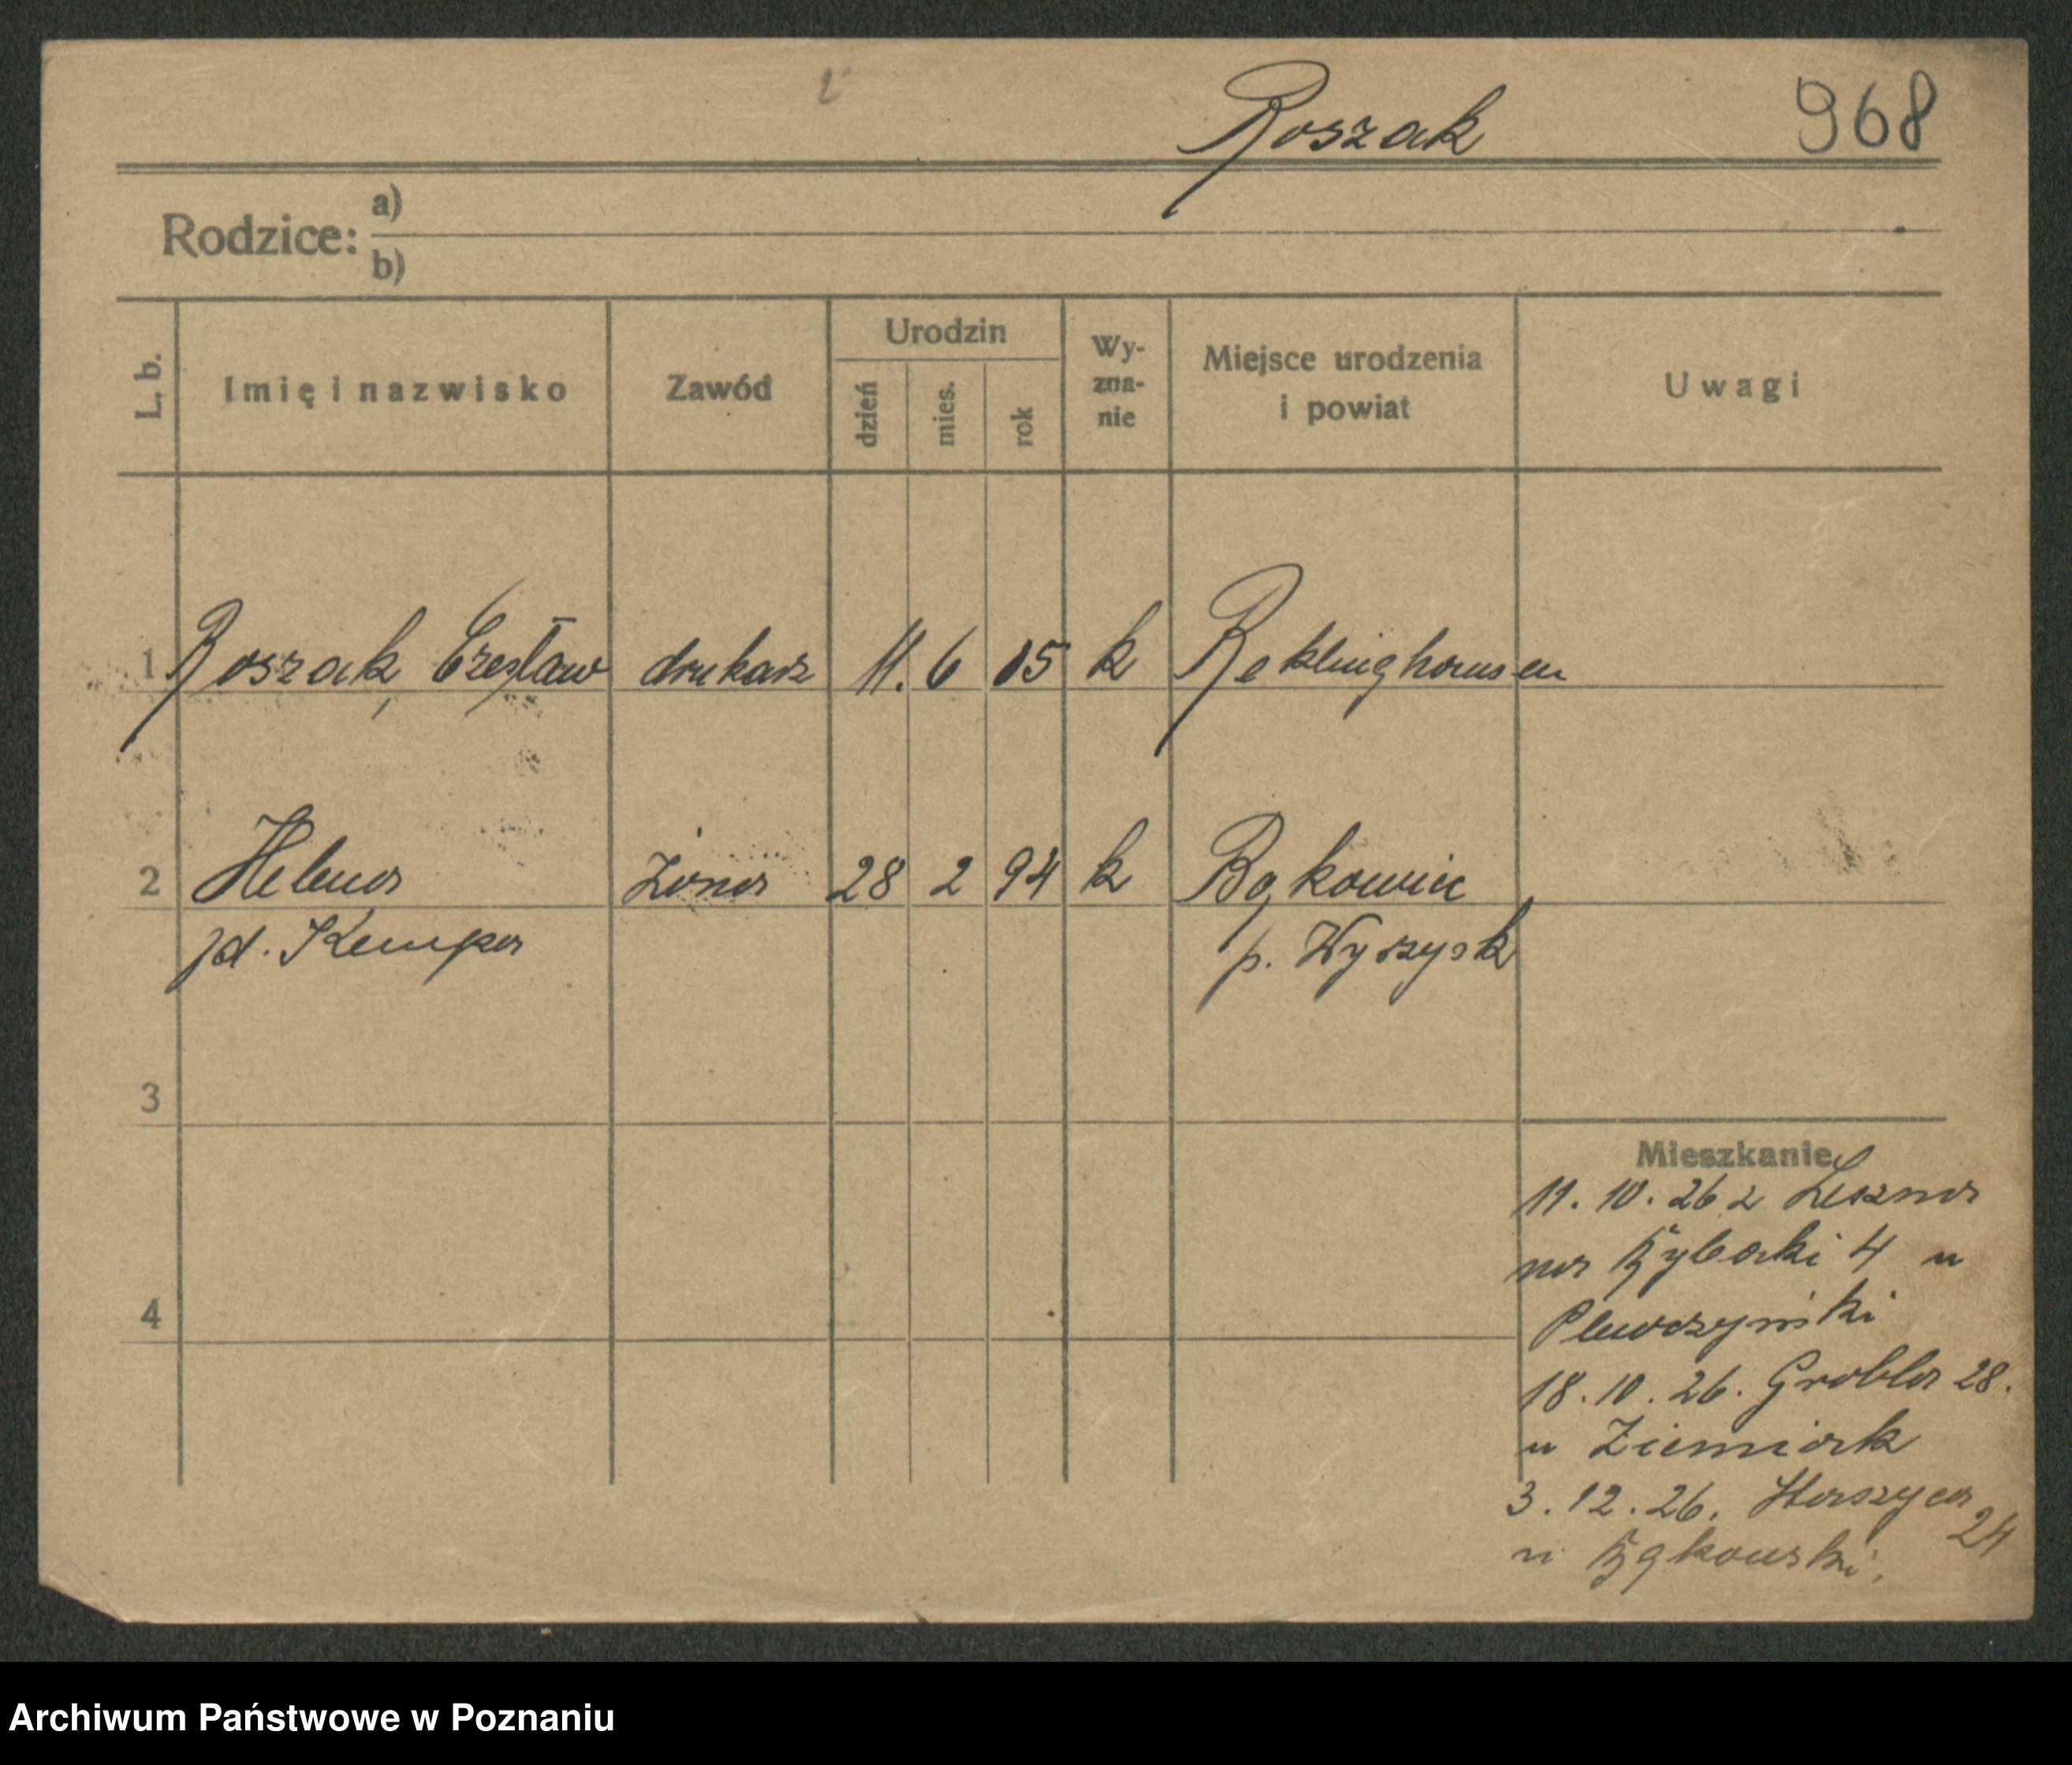 2
Roszak 968
Rodzice: a)
b)
L. b. Imię i nazwisko Zawód Urodzin dzień mies. rok Wy-zna-nie Miejsce urodzenia i powiat Uwagi
1 Roszak, Czesław drukarz 11. 6 05 k Reklinghausen
2 Helena żona 28 2 94 k Bąkowice
zd. Kempa p. Wyszysk
3
Mieszkanie
11. 10. 26 z Leszna
na Rybaki 4 u
18. 10. 26. Grobla 28.
u Ziemiak
3. 12. 26. Strszyca 24
u Bąkowski,
4
Archiwum Państwowe w Poznaniu